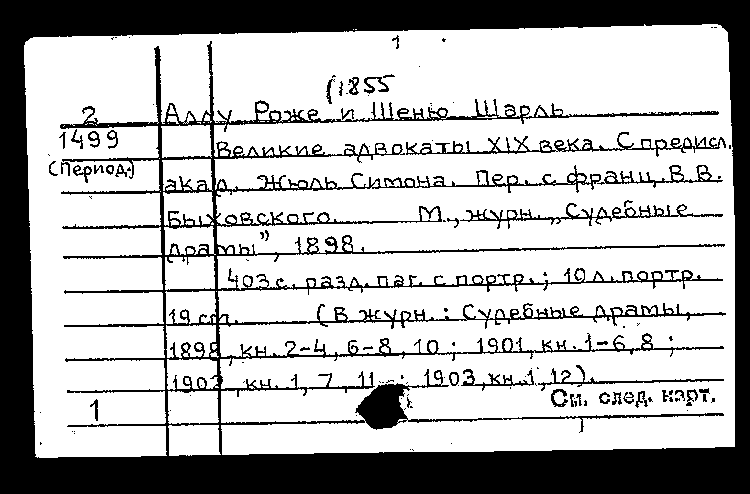 1
(1855
2 Аллу Роже и Шеню Шарль
1499 Великие адвокаты XIX века. С предисл.
(Период.) акад. Жюль Симона. Пер. с франц. В.В.
Быховского. М., журн. „Судебные
драмы”, 1898.
403 с. разд. паг. с портр.; 10 л. портр.
19 см. (В журн.: Судебные драмы,
1898, кн. 2-4, 6-8, 10; 1901, кн. 1-6, 8;
1902, кн. 1, 7, 11; 1903, кн. 1, 12).
1 См. след. карт.